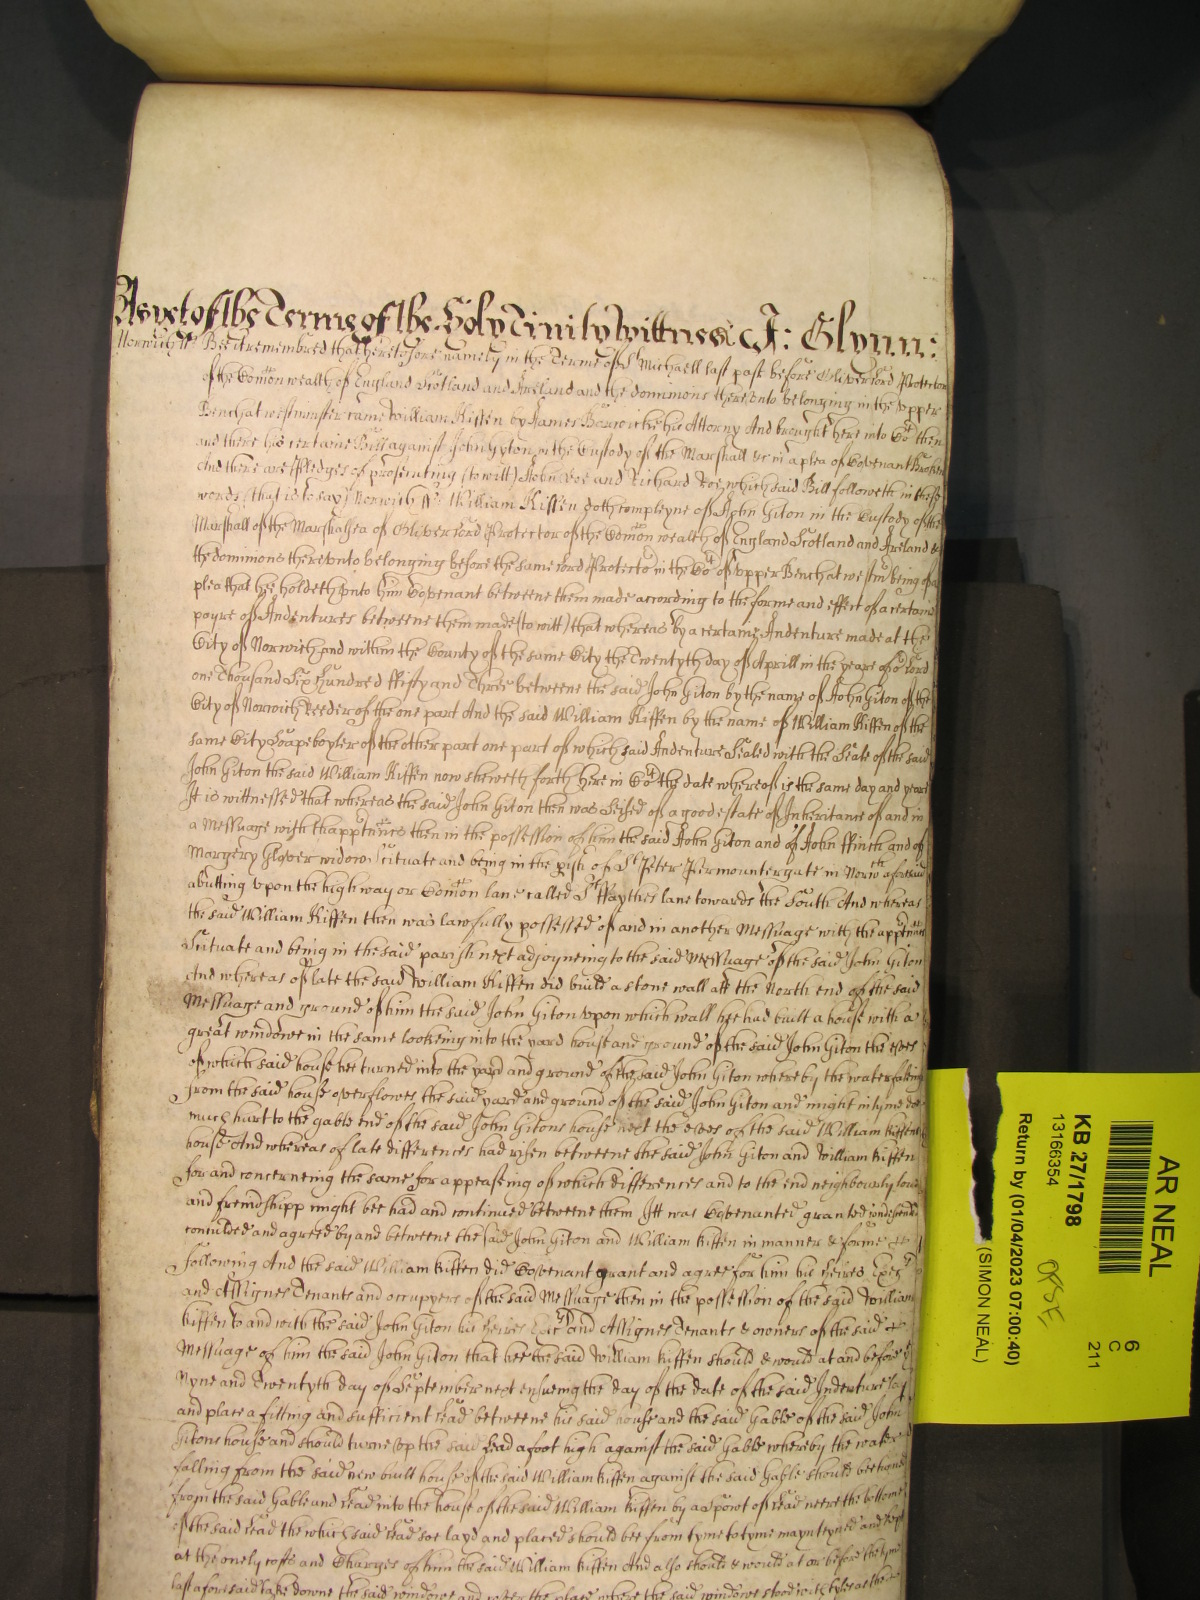 As yet of the Terme of the Holy Trinity Wittnes J: Glynn:
Norwich ss Bee it remembred that heretofore namely in the Terme of St Michaell last past before Oliver Lord Protector
of the Comon wealth of England Scotland and Ireland and the Dominions thereunto belonging in the upper
Bench at westminster came William Kiffen by James Barwicke his Attorny And brought here into Cot then
and there his certaine Bill against John Gyton in the Custody of the Marshall &c in a plea of Covenant broken
And there are Pledges of prosecuting (to witt) John Doe and Richard Roe which said Bill followeth in these
words (that is to say) Norwich ss: William Kiffen Compleyne of John Giton in the Custody of the
Marshall of the Marshalsea of Oliver Lord Protector of the Comon wealth of England Scotland and Ireland &
the dominions thereunto belonging before the same Lord Protector in the Cot of upper Bench at westm being of a
plea that hee holdeth unto him Covenant betweene them made according to the forme and effect of a certaine
payre of Indentures betweene them made (to witt) that whereas by a certaine Indenture made at the
City of Norwich and within the County of the same City the Twentyth day of Aprill in the yeare of or Lord
one Thousand Six Hundred ffifty and Three betweene the said John Giton by the name of John Giton of the
City of Norwich Reeder of the one part And the said William Kiffen by the name of William Kiffen of the
same City Soapeboyler of the other part one part of which said Indenture Sealed with the Seale of the said
John Giton the said William Kiffen now sheweth forth here in Cot the date whereof is the same day and yeare
It is wittnessed that whereas the said John Giton then was Seised of a good estate of Inheritance of and in
a Messuage with thapptnnces then in the possession of him the said John Giton and of John ffinch and of
Margery Glover widow Scituate and being in the pish of St Peter Permountergate in Norwch aforesaid
abutting upon the high way or Comon lane called St ffaythes lane towards the South And whereas
the said William Kiffen then was lawfully possessed of and in another Messuage with the apptnnces
Scituate and being in the said parish next adjoyneing to the said Messuage of the said John Giton
And whereas of late the said William Kiffen did build a stone wall att the North end of the said
Messuage and ground of him the said John Giton upon which wall hee had built a house with a
great windowe in the same lookeing into the yard house and ground of the said John Giton the eves
of which said house hee turned into the yard and ground of the said John Giton whereby the water falling
from the said house overflowes the said yard and ground of the said John Giton and might in tyme doe
much hurt to the gable end of the said John Gitons house next the eves of the said William Kiffens
house And whereas of late differences had risen betweene the said John Giton and William Kiffen
for and concerneing the same for appeasing of which differences and to the end neighbourly love
and freindshipp might bee had and continued betweene them Itt was Covenanted granted
concluded and agreed by and betweene the said John Giton and William Kiffen in manner & forme
following And the said William Kiffen did Covenant grant and agree for him his heires Exets
and Assignes Tenants and occupyers of the said Messuage then in the possession of the said William
Kiffen to and with the said John Giton his heires Exets and Assignes Tenants & owners of the said
Messuage of him the said John Giton that hee the said William Kiffen should & would at and before ye
Nyne and Twentyth day of September next ensueing the day of the date of the said Indenture lay
and place a fitting and sufficient Lead betweene his said house and the said Gable of the said John
Gitons house and should turne up the said Lead a foot high against the said Gable whereby the water
falling from the said new built house of the said William Kiffen against the said Gable should bee turned
from the said Gable and Lead into the house of the said William Kiffen by a Spowt of Lead neere the bottome
of the said Lead the which said Lead soe layd and placed should bee from tyme to tyme maynteyned and kept
at the onely costs and Charges of him the said William Kiffen And also should & would at or before the tyme
last aforesaid take downe the said windowe and the place where the said windowe stood with tyles
AR NEAL
6
C
211
KB 27/1798
13166354
Return by (01/04/2023 07:00:40)
(SIMON NEAL)